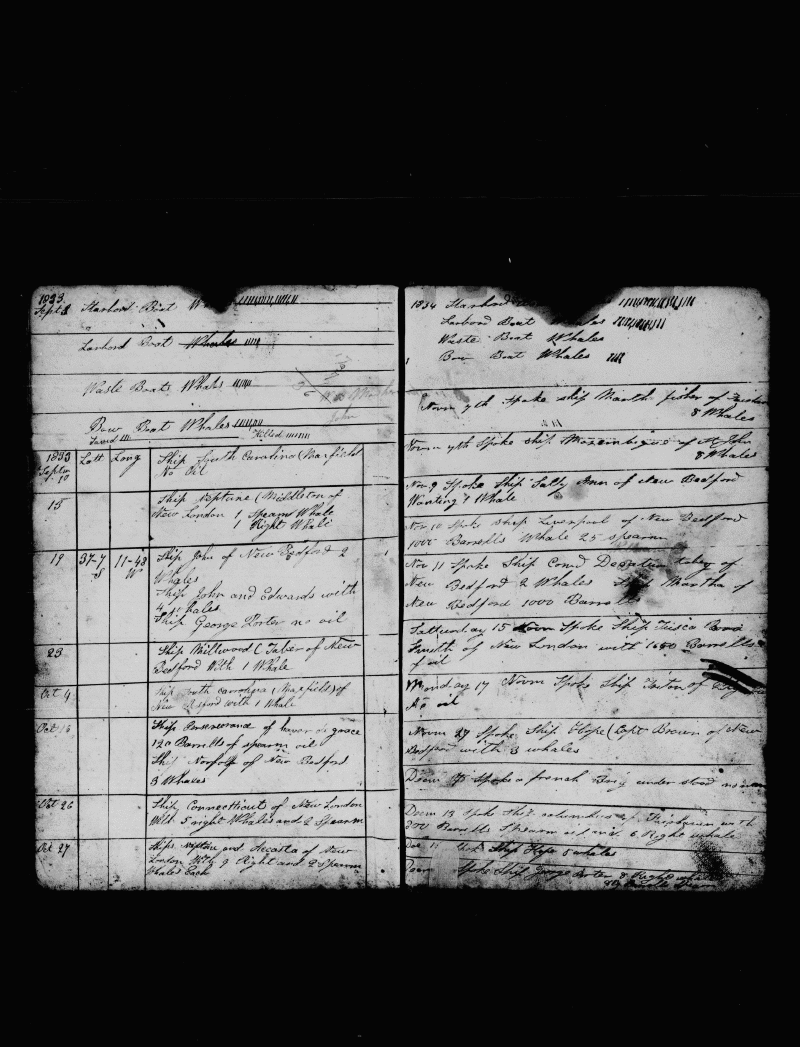 1833
Sept 8 Starbord Boat
Larbord Boat Whales
Waste Boats Whales
John
Bow Boat Whales
Saved Killed
1833 Latt Long Ship South Carolina (Maxfield
Septm 10 No Oil
15 Ship Neptune (Middleton of
New London 1 Spearm Whale
1 Right Whale
19 37-7 S 11-48 W Ship John of New Bedford 2
Whales
Ship John and Edwards with
4 Whales
Ship George Porter no oil
23 Ship Millwood (Taber of New
Bedford With 1 Whale
Oct 4 Ship South Carolina (Maxfield) of
New Bedford with 1 Whale
Oct 16 Ship Perseverance of havor de grace
120 Barrells of spearm oil
Ship Norfolk of New Bedford
3 Whales
Oct 26 Ship Connecticut of New London
With 5 right Whales and 2 Spearm
Oct 27 Ships Neptun and of New
London With 9 Right and 2 spearm
Whales Each
1834 Starbord
Larbord Boat
Waste Boat Whales
Bow Boat Whales
Novm 7th Spoke ship Marth fisher of
8 Whales
Novm 7th Spoke ship of
8 Whales
Nov 9 Spoke Ship Sally Ann of New Bedford
Wanting 1 Whale
Nov 10 Spoke Ship Liverpool of New Bedford
1000 Barrells Whale 25 spearm
Nov 11 Spoke Ship Comd taby of
New Bedford 2 Whales Ship Martha of
New Bedford 1000 Barrells
Satturday 15 Novm Spoke Ship
Smith of New London with 1600 Barrells
of oil
Monday 17 Novm Spoke Ship of
No oil
Novm 27 Spoke Ship Hope (Capt Brown of New
Bedford with 3 whales
Decm Spoke a french Brig under stood
Decm 13 Spoke Ship columbus of with
200 Barrells Spearm oil and 6 Right whale
Dec 11 Ship Hope 5 whales
Decm Spoke Ship George Porter 8 Right